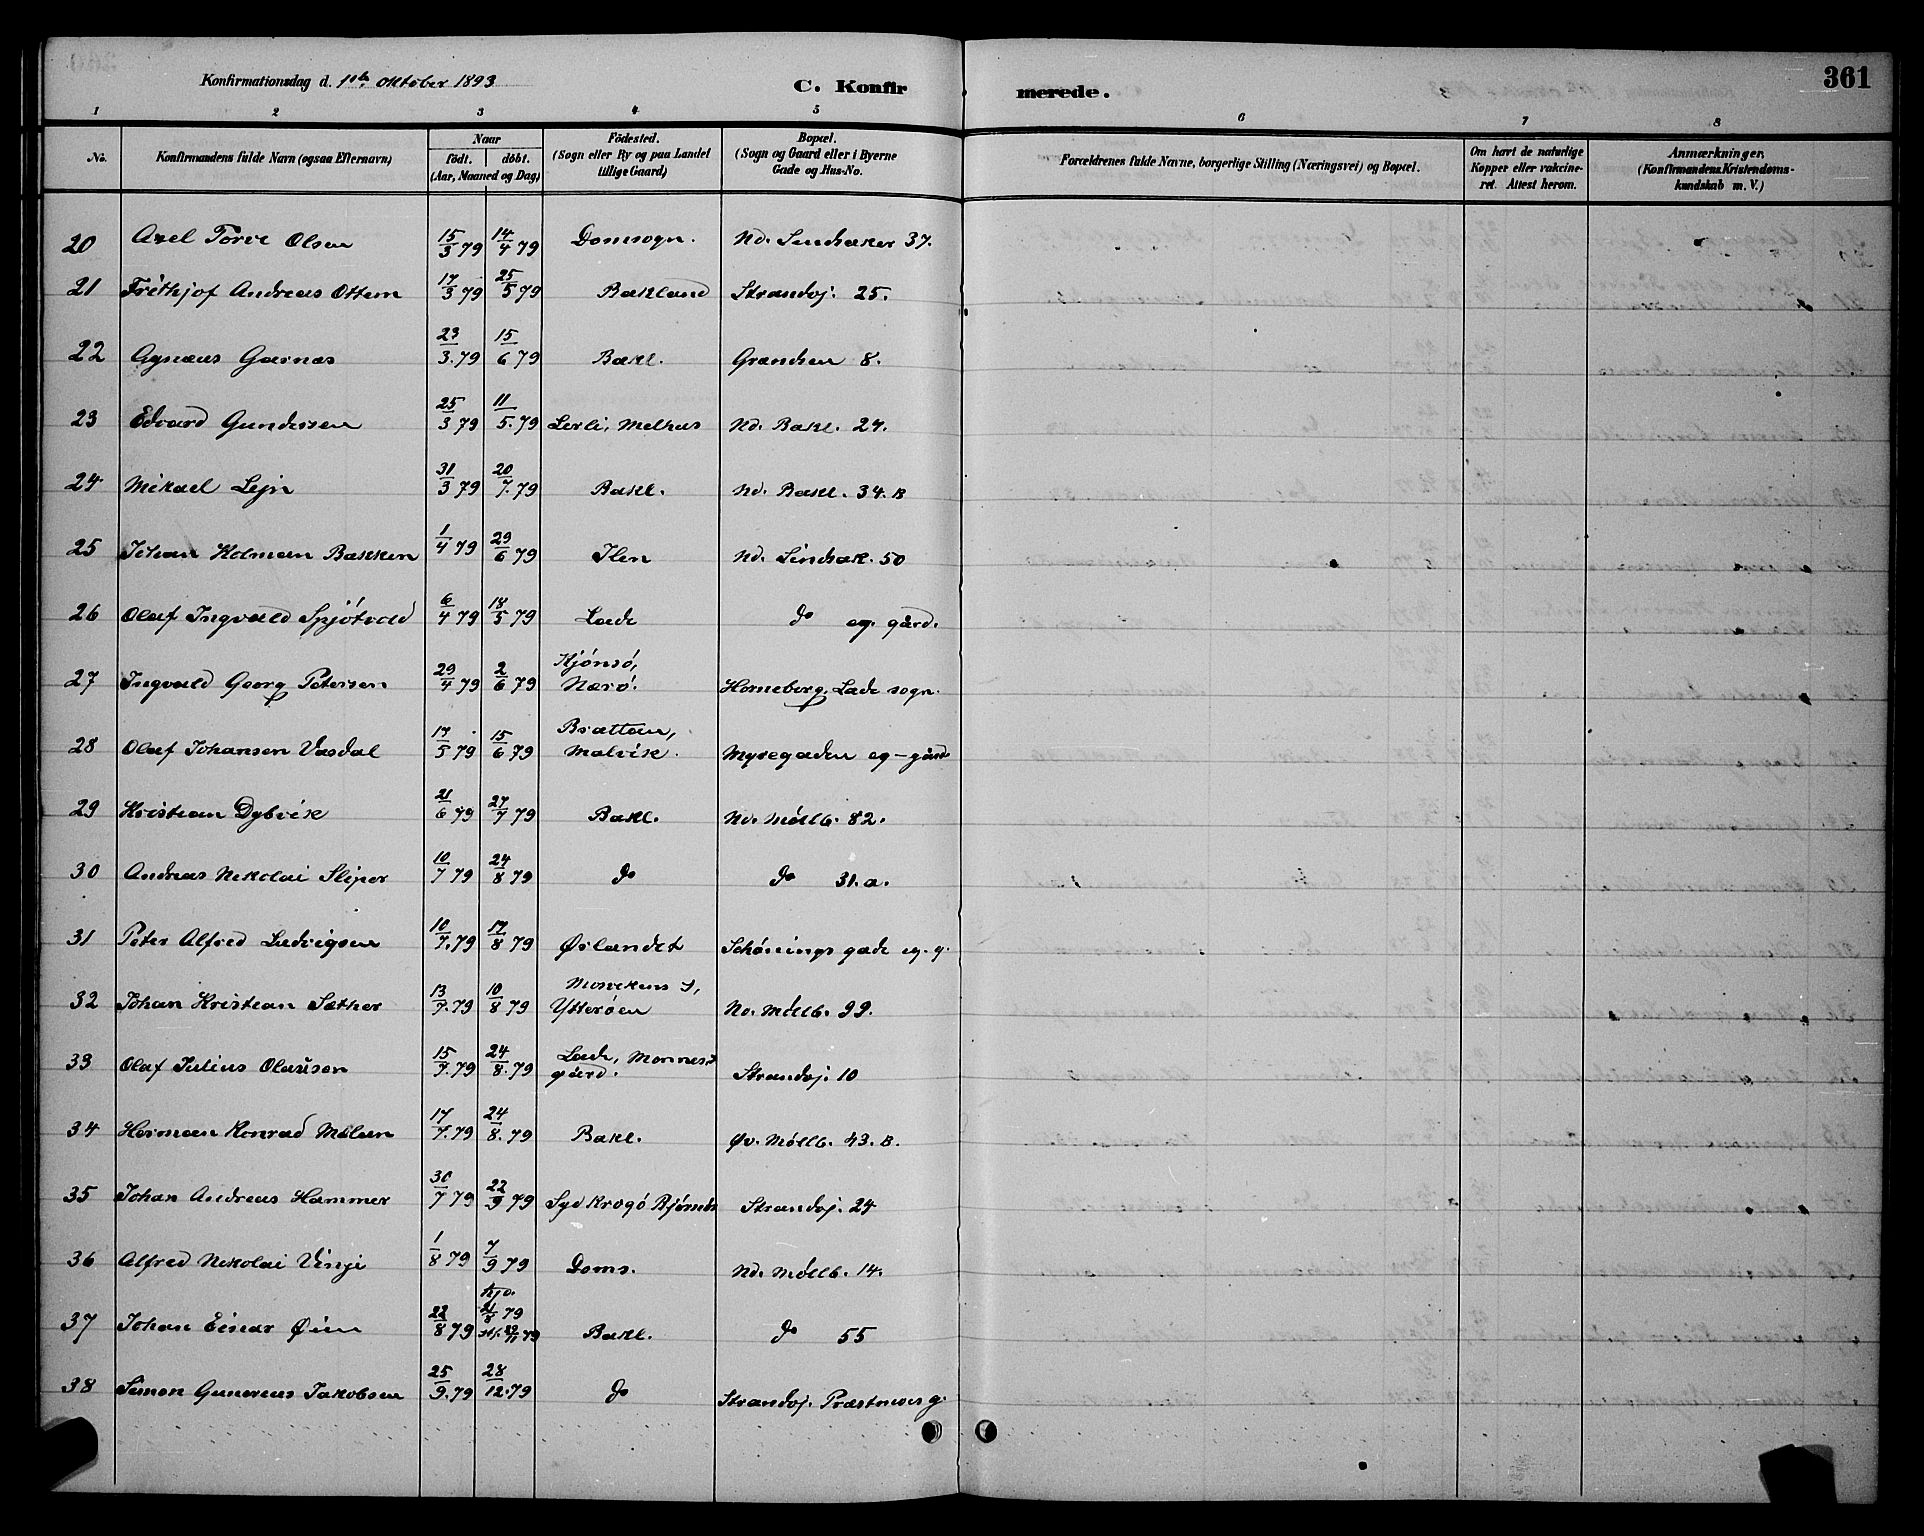 Konfirmationsdag d. 1ste oktober 1893
C. Konfir merede.
361
1 2 3 4 5 6 7 8
No.
Konfirmandens fulde Navn (ogsaa Efternavn)
Naar
födt. döbt.
(Aar, Maaned og Dag)
Födested.
(Sogn eller By og paa Landet
tillige Gaard)
Bopæl.
(Sogn og Gaard eller i Byerne
Gade og Hus-No.
Forældrenes fulde Navne, borgerlige Stilling (Næringsvei) og Bopæl.
Om havt de naturlige
Kopper eller vakcine-
ret. Attest herom.
Anmærkninger.
(Konfirmandens Kristendoms-
kundskab m. V.)
20 Axel Torve Olsen 15/3 79 14/4 79 Domsogn. Nd. Sindsaker 37.
21 Frithjof Andreas Ottem 17/3 79 25/5 79 Bakland Strandvj. 25.
22 Agnæus Garnæs 23/3.79 15/6 79 Bakl. Grændsen 8.
23 Edvard Gundersen 25/3 79 11/5.79 Lerli, Melhus Nd. Bakl. 27.
24 Mikael Lejn 31/3 79 20/7.79 Bakl. Nd. Bakl. 34. B
25 Johan Holman Bakken 1/4 79 29/6 79 Ilen Nd. Sindsak. 50
26 Olaf Ingvald Spjötvold 6/4 79 18/5 79 Lade do eg. gård.
27 Ingvald Georg Petersen 29/4 79 2/6 79 Kjönsö,
Nærö. Horneberg, Lade sogn.
28 Olaf Johansen Vasdal 17/5 79 15/6 79 Brættem,
Malvik. Myregaden eg-gård
29 Kristian Dybvik 21/6 79 27/7 79 Bakl. Nd. Möllb. 82.
30 Andreas Nikolai Sliper 10/7 79 24/8 79 do do 31. a.
31 Peter Alfred Ludvigsen 10/7.79 17/8 79 Ørlandet Schönings gade eg. g.
32 Johan Kristian Sæther 13/7.79 10/8 79
Ytteröen No. Möllb. 99.
33 Olaf Julius Olausen 15/7.79 24/8.79 Lade,
gård. Strandvj. 10
34 Herman Konrad Melum 17/7.79 24/8.79 Bakl. Øv. Möllb. 43. B.
35 Johan Andreas Hammer 30/7 79 22/9 79 Syd Krogö Bjørnör Strandvj. 24
36 Alfred Nikolai Vinje 1/8 79 7/9 79 Doms. Nd. Möllb. 14.
37 Johan Einar Øien 22/8 79 hjd. 21/8 79 Bakl. do 55
38 Simon Gunerius Jakobsen 25/9.79 28/12.79 do Strandvj. Præstnes g.